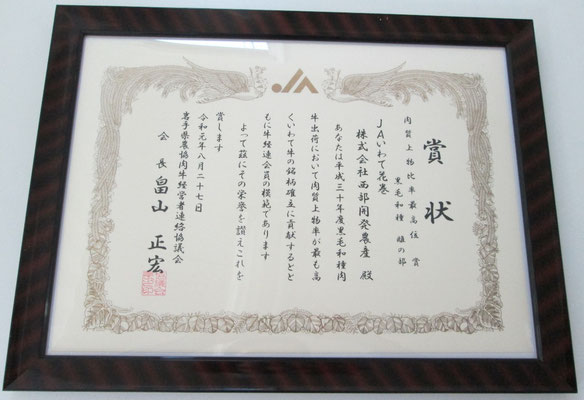 賞状
肉質上物比率最高位賞
黒毛和種 雌の部
JAいわて花巻
株式会社西部開発農産 殿
あなたは平成三十年度黒毛和種肉
牛出荷において肉質上物率が最も高
くいわて牛の銘柄確立に貢献するとと
もに牛経連会員の模範であります
よって茲にその栄誉を讃えこれを
賞します
令和元年八月二十七日
岩手県農協肉牛経営者連絡協議会
会長 畠山 正宏